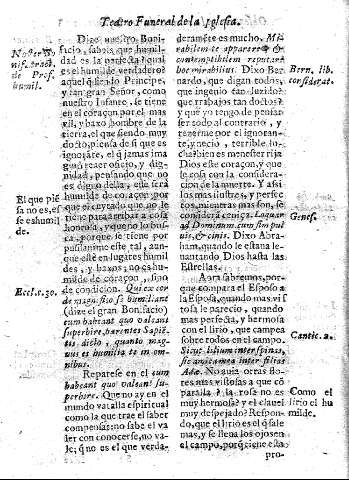 Teatro Funeral de la Iglesia.
Dize nuestro Boni-
facio, sabeis que humil-
dad es la perfecta? qual
es el humilde verdadero?
aquel siendo Principe,
y tan gran Señor, como
nuestro Infante, se tiene
en el coraçon por el mas
vil, y baxo hombre de la
tierra, el que siendo muy
docto, piensa de si que es
ignorãte, el q̃ jamas ima
ginò merecer oficio, y dig-
nidad, pensando que no
es digno della, este serà
humilde de coraçon: por
que el cuytado que no le
tiene para arribar a cosa
honrosa, y que no lo bus-
ca, porque se tiene por
pusilanime este tal, aun-
que estè en lugares humil
des, y baxos, no es hu-
milde de coraçon, sino
de condicion. Qui ex cor
de magnifico se humiliant
(dize el gran Bonifacio)
cum habeant quo valeant
superbire, parentes Sapiē-
tis dicto, quanto mag-
nus es humilia te in om-
nibus.
Reparese en el cum
habeant quo valeant su-
perbire. Que no ay en el
mundo vatalla espiritual
como la que trae el saber
compensar: no sabe el va
ler con conocerse, no va-
le; q̃ no es el que verda-
El que piē
sa no es, es-
se es humil
de.
Eccl. c. 30.
deramēte es mucho. Mi-
rabilem te apparere &
contemptibilem reputare
hoc mirabilius. Dixo Ber
nardo, que digan todos,
que ingenio tan luzido?
que trabajos tan doctos?
y que yo tengo de pensar
ser todo al contrario, y
tenerme por el ignoran-
te, y necio, terrible lu-
cha! bien es menester rija
Dios esse coraçon, y que
le rosa con la considera-
cion de la muerte. Y assi
los mas ilustres, y perfec
tos, mientras mas lo son, se
consideran ceniça. Loquar
ad Dominum cum sim pul
uis, & cinis. Dixo Abra-
ham, quando le estana le-
uantando Dios hasta las
Estrellas.
Aora sabremos, por-
que compara el Esposo a
la Esposa, quando mas vi s
tosa le parecio, quando
mas perfecta, y hermosa
con el lirio, que campea
sobre todos en el campo.
Sicut lilium inter spinas,
sic amica mea inter filias
Adæ. No auia otras flo-
res mas vistosas a que cõ
pararla? la rosa no es
muy hermosa? y el clauel
muy despejado? Respon-
do, que el lirio es el q̃ sale
mas, y se llena los ojos en
el campo, porq̃ tiene esta
pro-
Bern. lib.
considerat.
Genes.
Cantic. 2.
Como el
lirio el hu
milde.